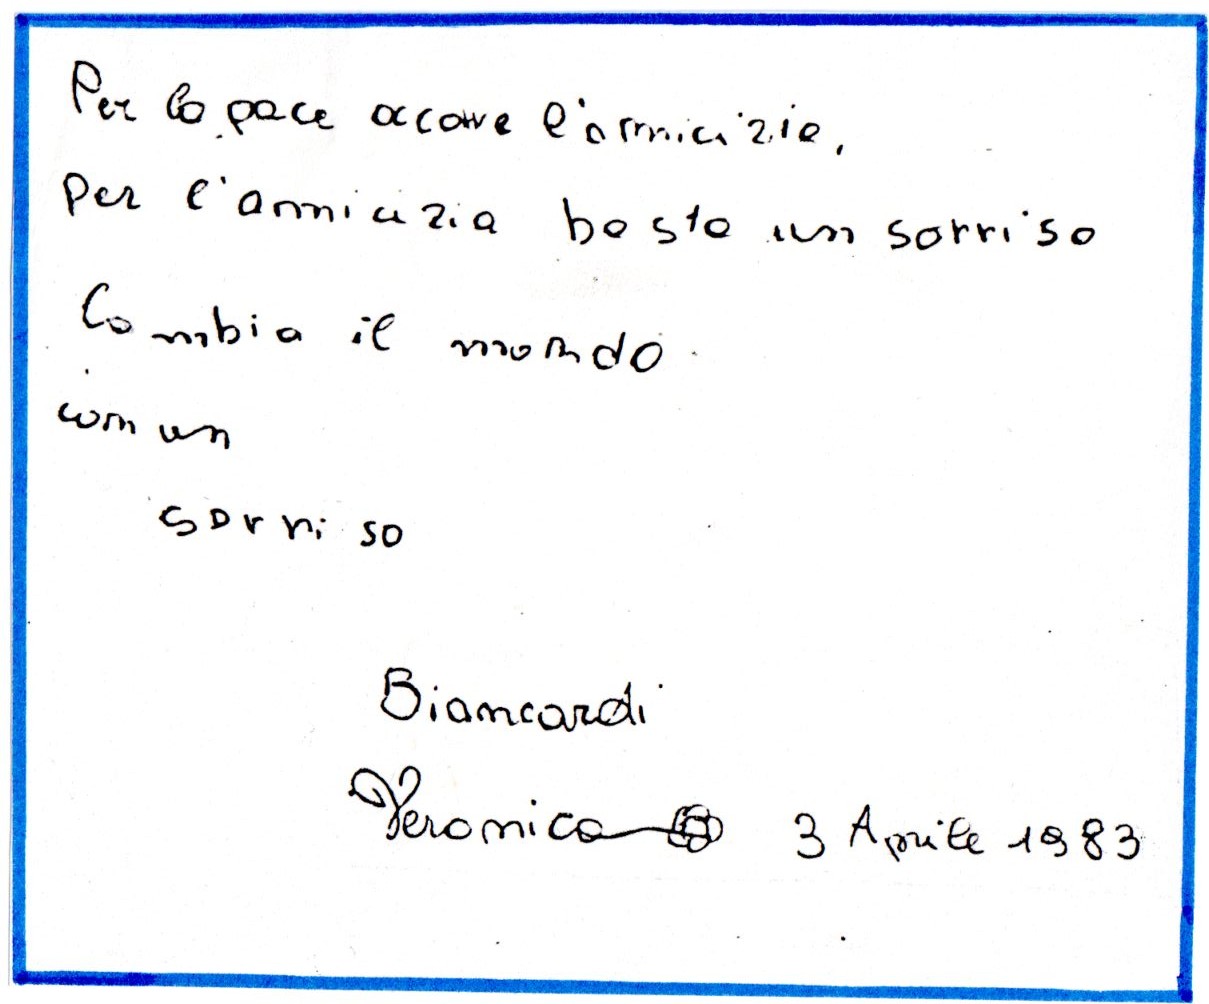 Per la pace occorre l'amicizia,
per l'amicizia basta un sorriso
Cambia il mondo
con un
sorriso
Biancardi
Veronica 3 Aprile 1983